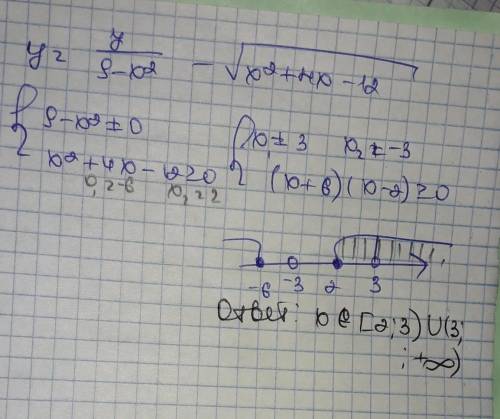 y = \frac{7}{9-x^2} - \sqrt{x^2+4x-12}
{ 9-x^2 ≠ 0
x^2+4x-12≥0
x_1=-6 x_2=2
{ x_1≠3 x_2≠-3
(x+6)(x-2)≥0
-6 -3 2 3
Ответ: x∈[2;3)∪(3;
;+∞)